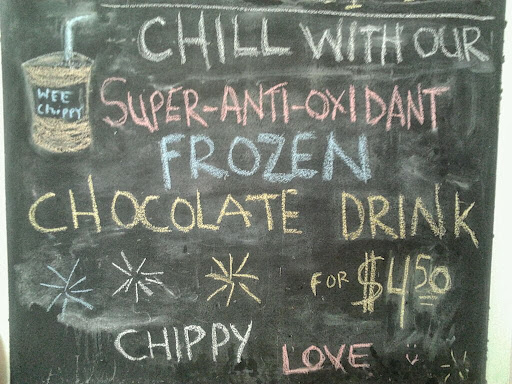 CHILL WITH OUR
WEE
Chippy
SUPER-ANTI-OXIDANT
FROZEN
CHOCOLATE DRINK
FOR $4.50
CHIPPY LOVE